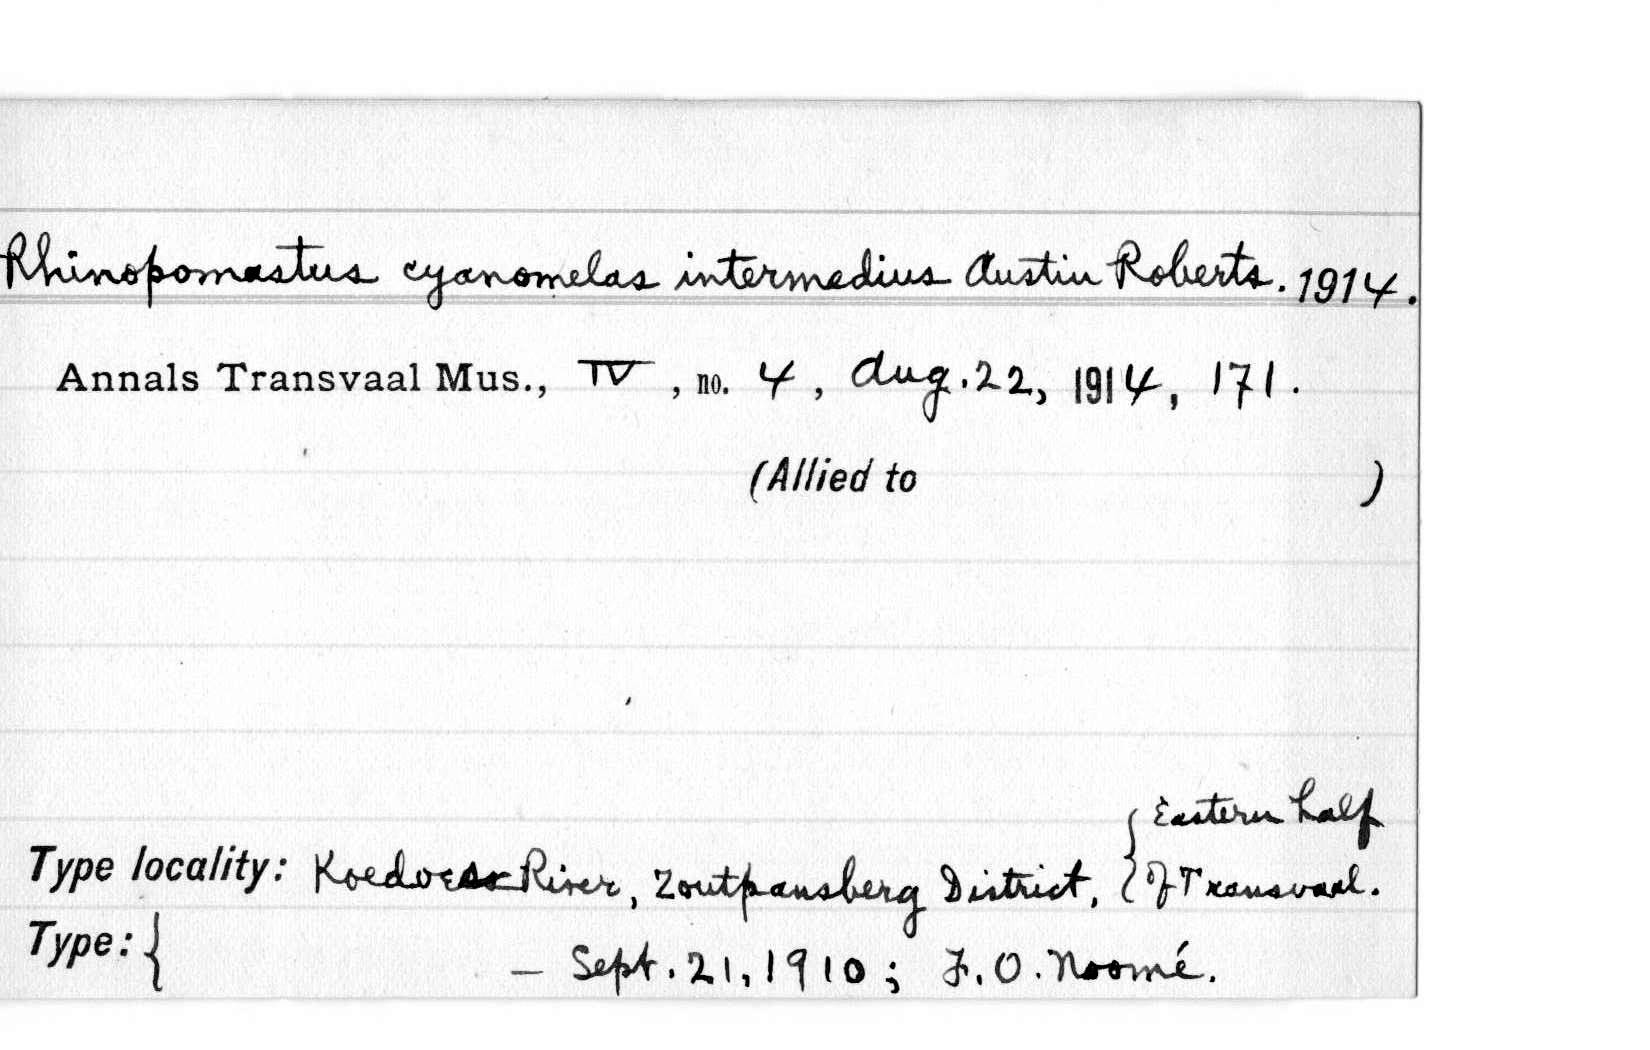 Rhinopomastus cyanomelas intermedius Austin Roberts. 1914.
Annals Transvaal Mus., IV, no. 4, Aug. 22, 1914, 171.
(Allied to )
Type locality: River, Zoutpansberg District, { Eastern half of Transvaal.
Type: { — Sept. 21, 1910; F. O. Noomé.